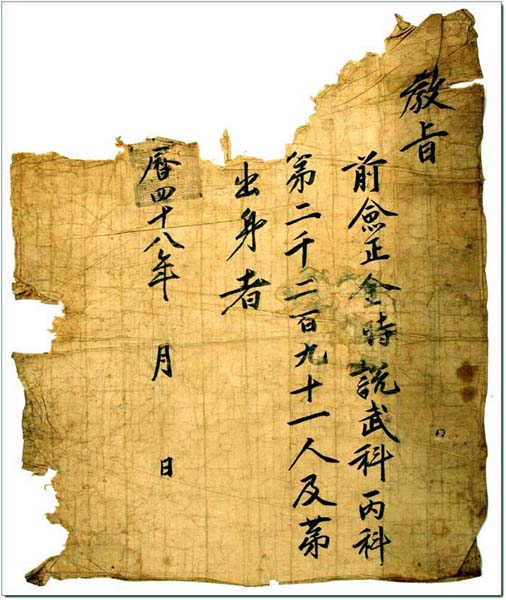 教旨
前㑒正金時說武科丙科
第二千二百九十一人及苐
出身者
曆四十八年 月 日